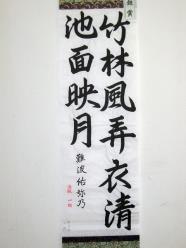 竹林風弄衣清
池面映月
難波佑弥乃
銀賞